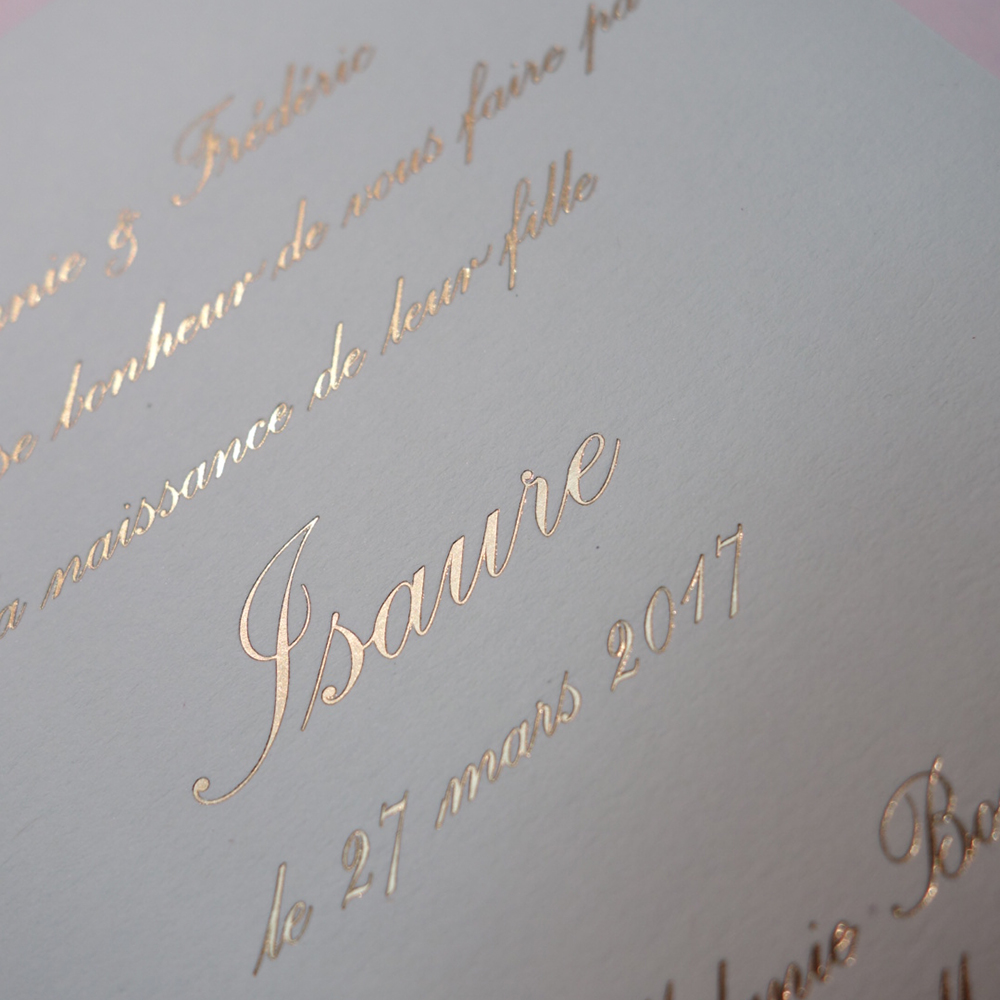 &  Frédéric
bonheur de vous faire
naissance de leur fille
Isaure
le 27 mars 2017